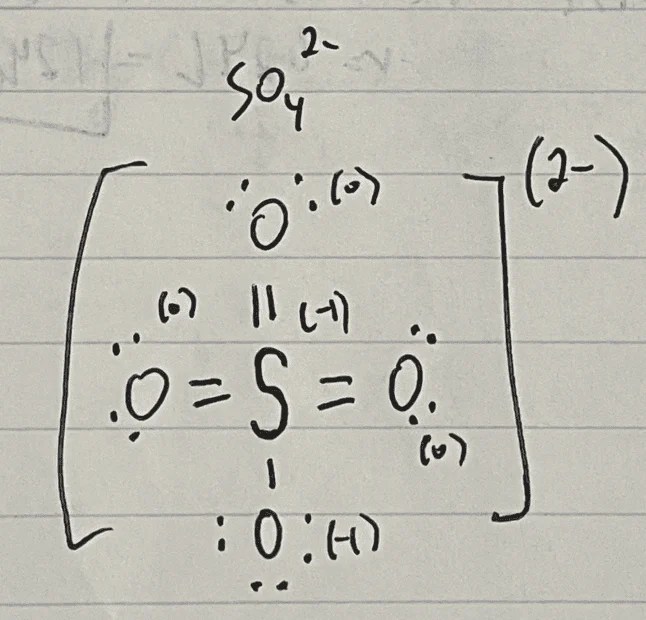 SO₄²⁻
(2-)
:O:(0)
(0) || (-1)
:O=S=O:
(0)
|
:O:(-1)
..